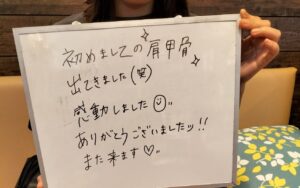 初めましての肩甲骨
出てきました(笑)
感動しました☺。
ありがとうございましたッ!!
また来ます♡。